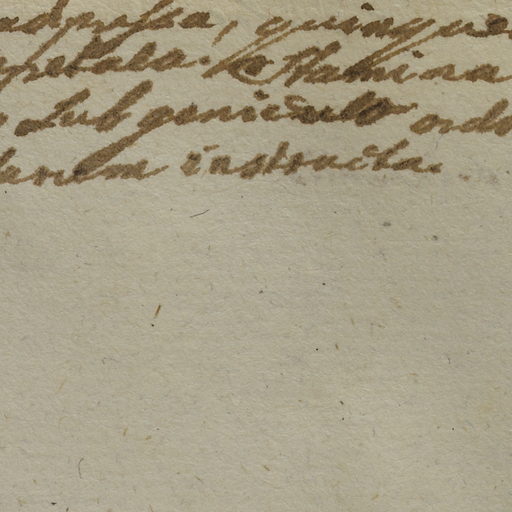 adpressa, quinque
petala. Stamina
sub geniculo ordi
larum instructa.